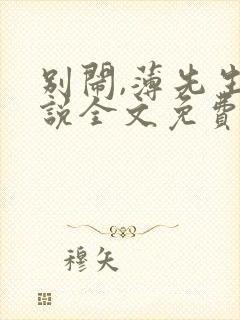 别闹,薄先生
説全文免費
穆矢